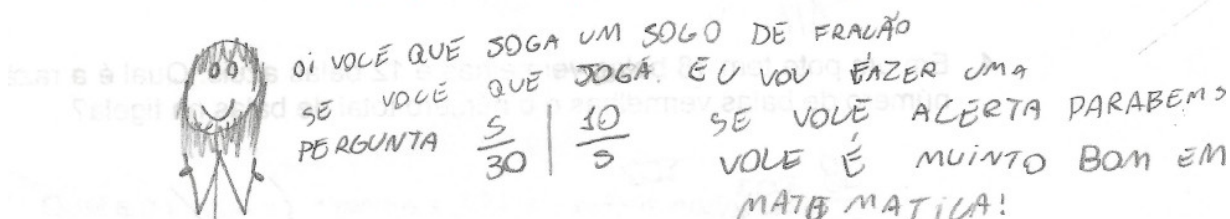 OI VOCE QUE JOGA UM JOGO DE FRACÃO
SE VOCE QUE JOGA. EU VOU FAZER UMA
PERGUNTA 5/30 | 10/5 SE VOCE ACERTA PARABEMS
VOCE É MUINTO BOM EM
MATEMATICA!